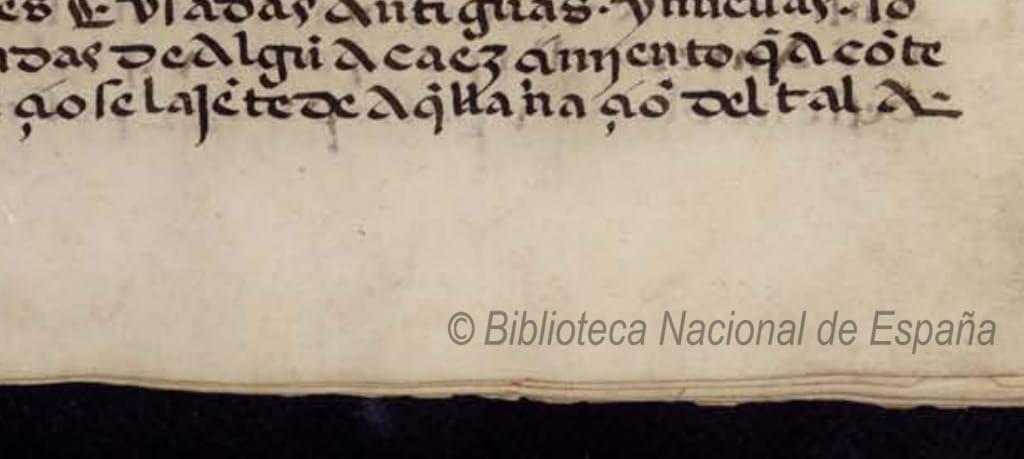 es E vsadas Antiguas. ynueuas. lo
das deAlgũ Acaezçimjento q̃Acõte
çio se lajẽte de Aq̃lla naçiõ del tal A-
© Biblioteca Nacional de España